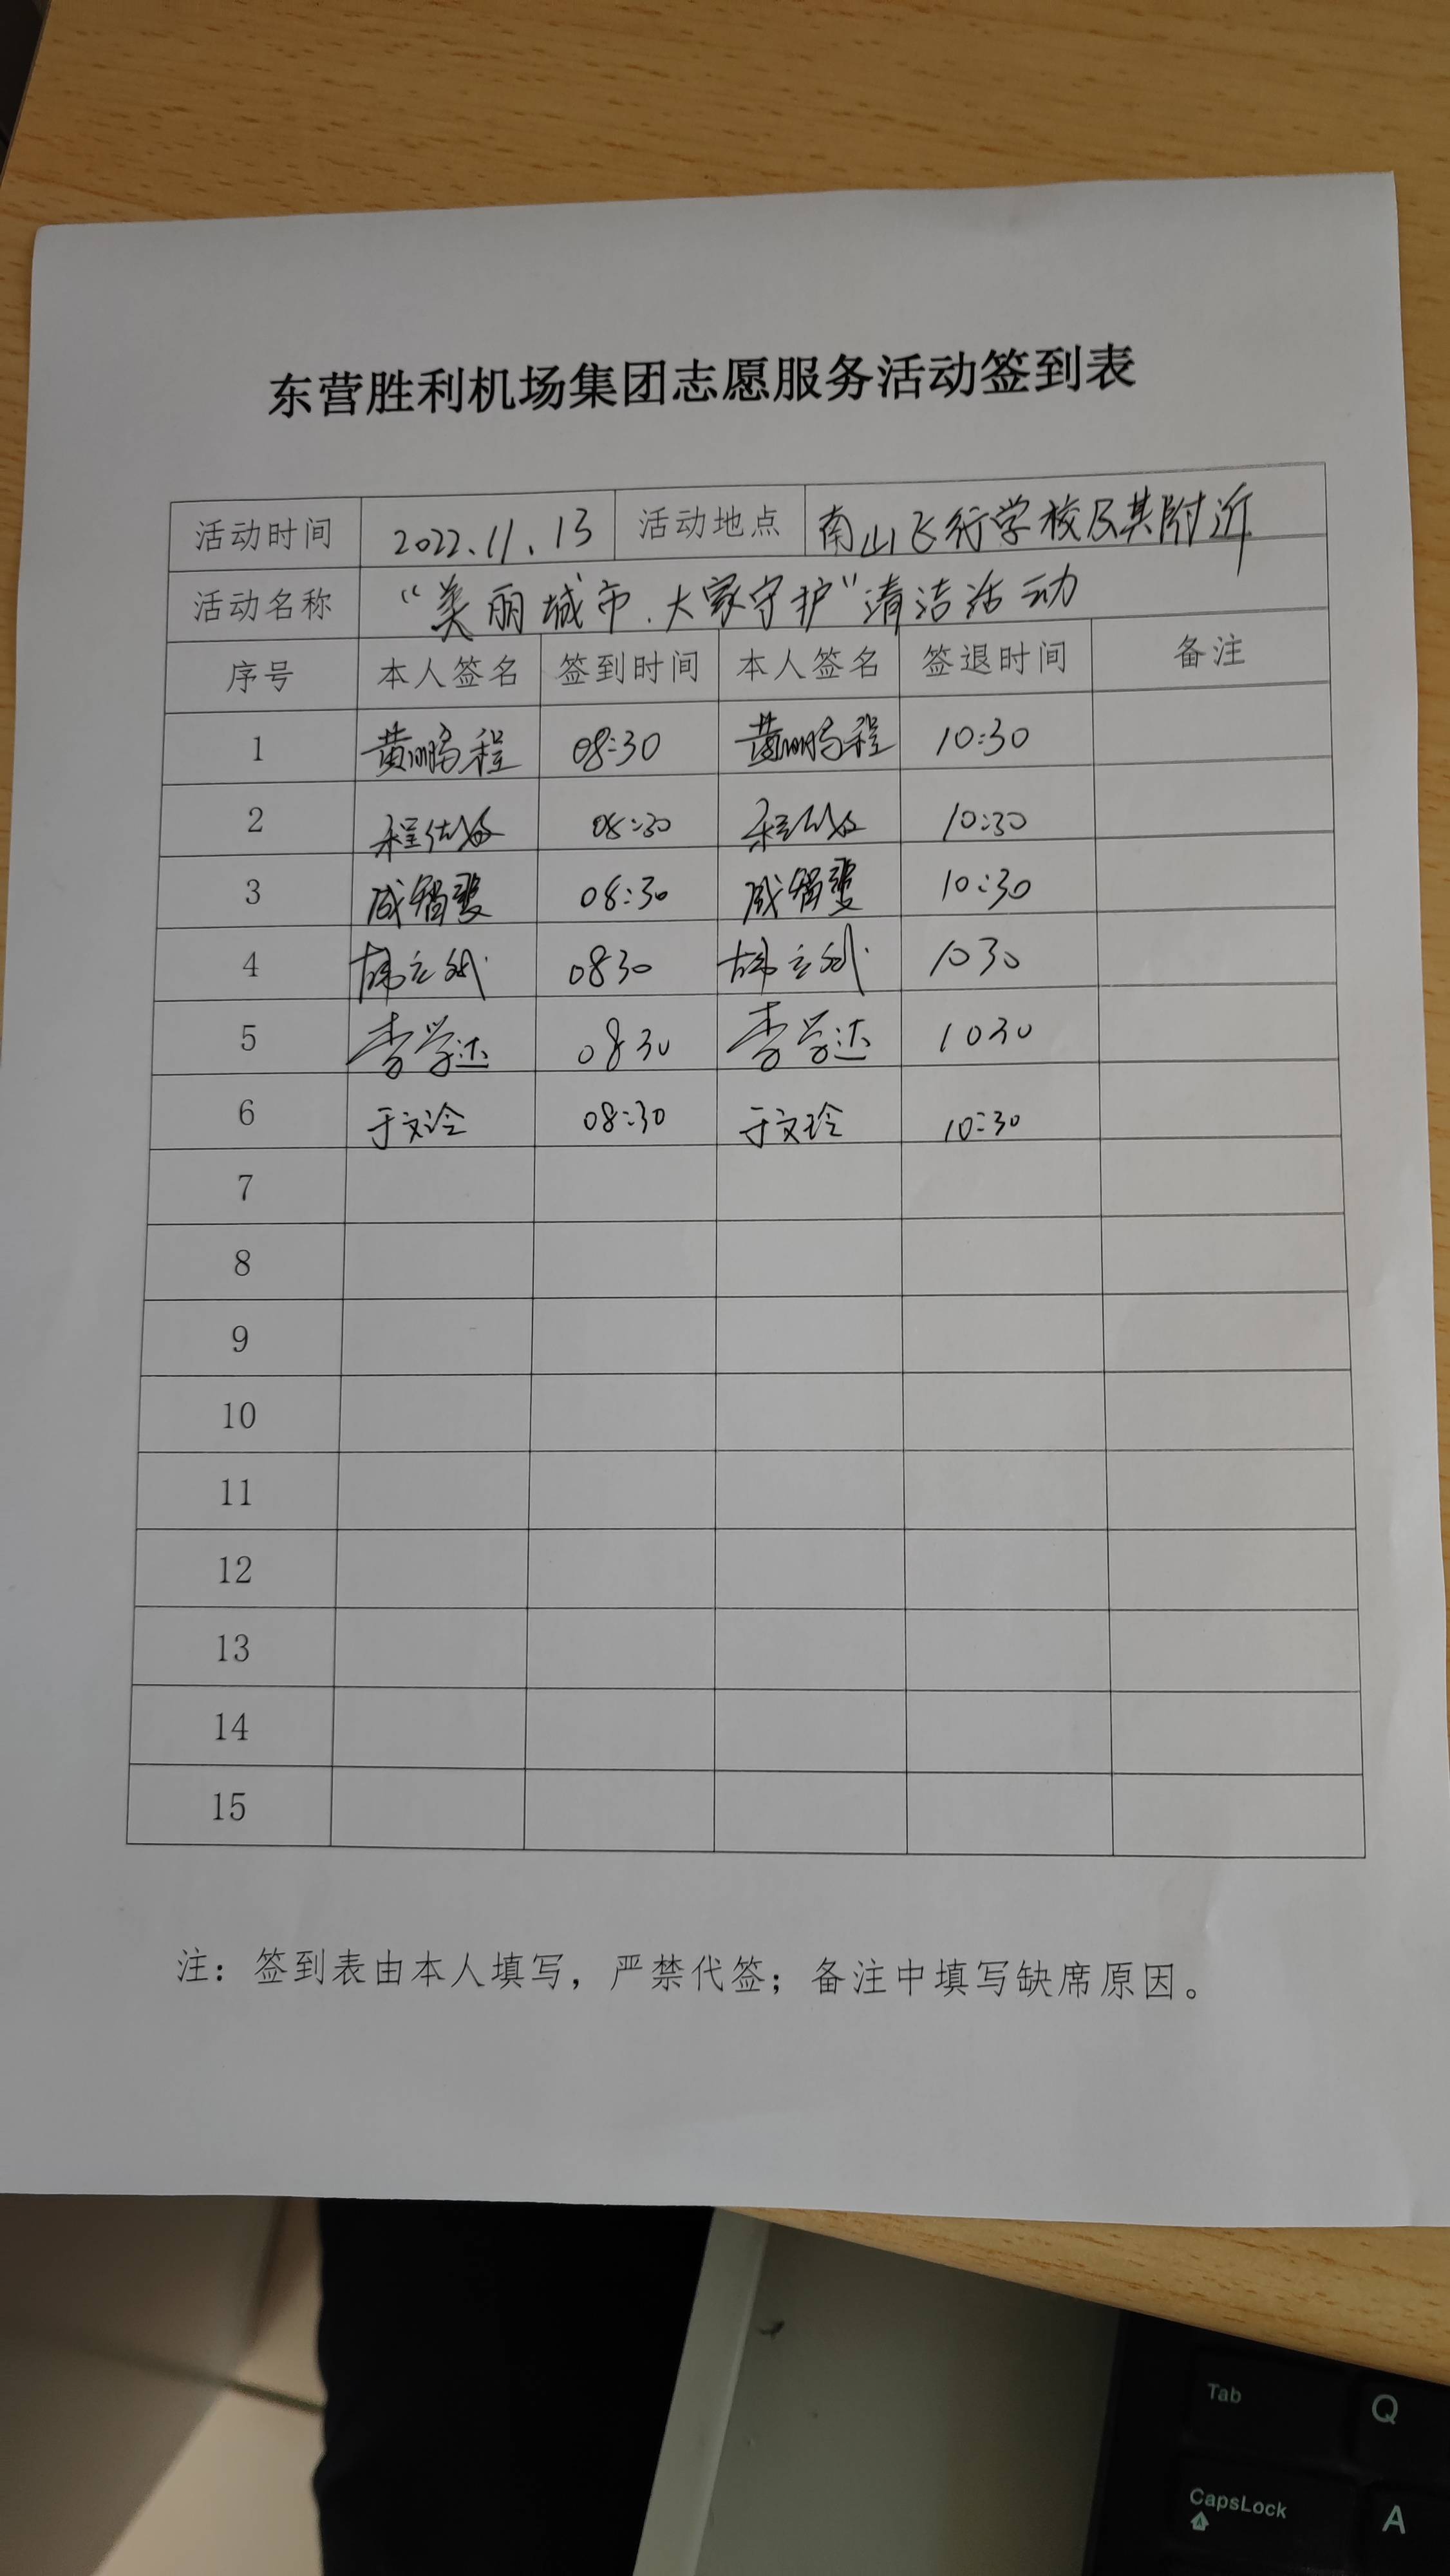 东营胜利机场集团志愿服务活动签到表
活动时间 2022.11.13 活动地点 南山飞行学校及其附近
活动名称 “美丽城市.大家守护”清洁活动
序号 本人签名 签到时间 本人签名 签退时间 备注
1 黄鹏程 08:30 黄鹏程 10:30
2 08:30 10:30
3 08:30 10:30
4 0830 1030
5 李学达 0830 李学达 1030
6 于文玲 08:30 于文玲 10:30
7
8
9
10
11
12
13
14
15
注：签到表由本人填写，严禁代签；备注中填写缺席原因。
Tab Q
CapsLock A